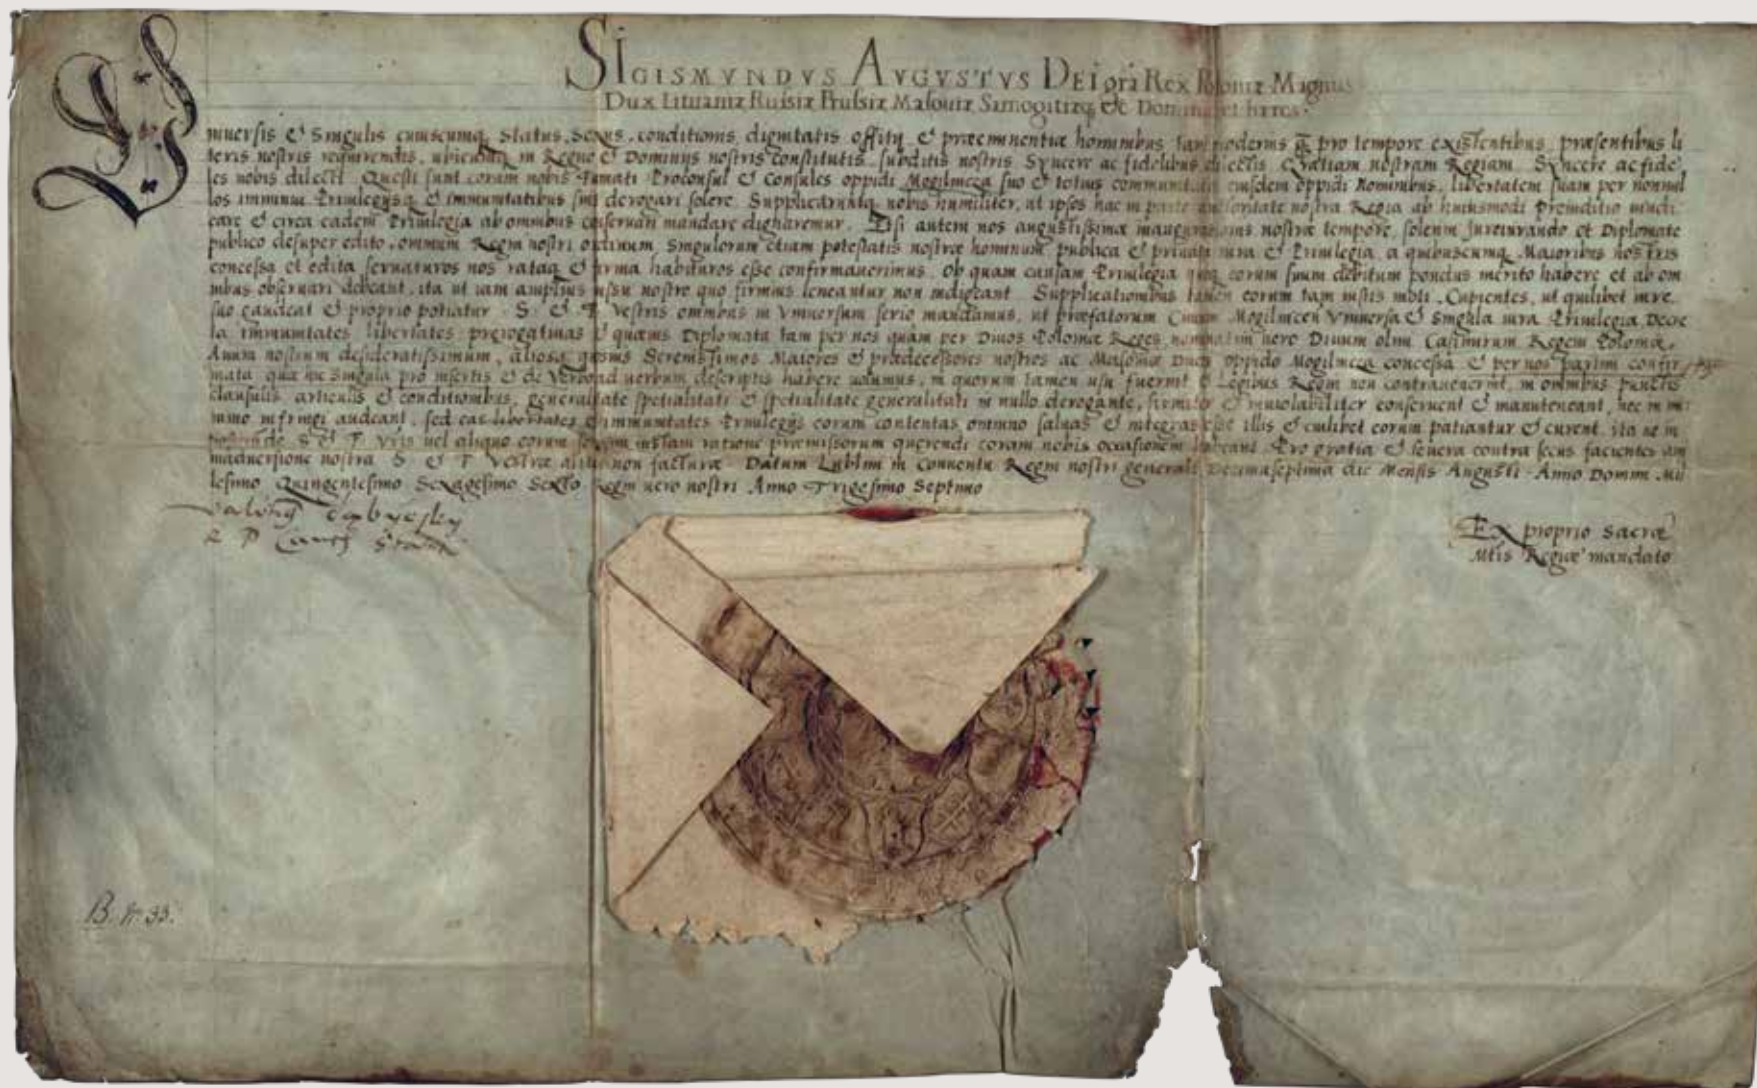 SIGISMVNDVS AVGVSTVS DEI gra Rex Poloniæ Magnus
Dux Lituaniæ Russiæ Prussiæ Masouiæ Samogitiæq etc Dominus et hæres.
Vniuersis & Singulis cuiuscumq Status, Sexus, conditionis dignitatis offitij & præeminentiæ hominibus tam modernis q pro tempore existentibus præsentibus li
teris nostris requirendis, ubicunq in Regno & Dominijs nostris constitutis, subditis nostris Syncere ac fidelibus dilectis Gratiam nostram Regiam. Syncere ac fide
les nobis dilecti. Questi sunt coram nobis famati Proconsul & Consules oppidi Mogilnicza suo & totius communitatis eiusdem oppidi nominibus, libertatem suam per nonnul
los iminui Priuilegijsq & immunitatibus suis derogari solere. Supplicaruntq nobis humiliter, ut ipsos hac in parte authoritate nostra Regia ab huiusmodi preiuditio uindi
care & circa eadem Priuilegia ab omnibus conseruari mandare dignaremur. Etsi autem nos augustissimæ inaugurationis nostræ tempore, solenni Jureiurando et Diplomate
publico desuper edito, omnium Regni nostri ordinum Singulorum etiam potestatis nostræ hominum publica & priuata iura & Priuilegia, a quibuscumq Maioribus nostris
concessa et edita seruaturos nos rataq & firma habituros esse confirmauerimus. Ob quam causam Priuilegia quoq eorum suum debitum pondus merito habere et ab om
nibus obseruari debeant, ita ut iam amplius iussu nostro quo firmius teneantur non indigeant. Supplicationibus tamen eorum tam iustis moti. Cupientes, ut quilibet iure
suo gaudeat & proprio potiatur. S. & F. Vestris omnibus in Vniuersum serio mandamus, ut præfatorum Ciuium Mogilnicen Vniuersa & Singula iura Priuilegia Decre
ta immunitates libertates prerogatiuas & quæuis Diplomata tam per nos quam per Diuos Poloniæ Reges, nominatim uero Diuum olim Casimirum Regem Poloniæ,
Auum nostrum desideratissimum, aliosq quosuis Serenissimos Maiores & prædecessores nostros ac Masouiæ Duces oppido Mogilnicza concessa & per nos partim confir
mata quæ hic Singula pro insertis & de Verbo ad uerbum descriptis habere uolumus, in quorum tamen usu fuerint & Legibus Regni non contrauenerint, in omnibus punctis
clausulis articulis & conditionibus, generalitate spetialitati & spetialitate generalitati in nullo derogante, firmiter & inuiolabiliter conseruent & manuteneant, nec in mi
nimo infringi audeant, sed eas libertates & immunitates Priuilegijs eorum contentas omnino saluas & integras esse illis & cuilibet eorum patiantur & curent, ita ne in
S. & F. Vris uel aliquo eorum iustam ratione præmissorum querendi coram nobis occasionem habeant. Pro gratia & seuera contra secus facientes ani
maduersione nostra S. & F. Vestræ aliter non facturæ. Datum Lublini in Conuentu Regni nostri generali Decimaseptima die Mensis Augusti. Anno Domini Mil
lesimo Quingentesimo Sexagesimo Sexto Regni uero nostri Anno Trigesimo Septimo
Ex proprio Sacræ
Mtis Regiæ mandato
B. Nr. 33.